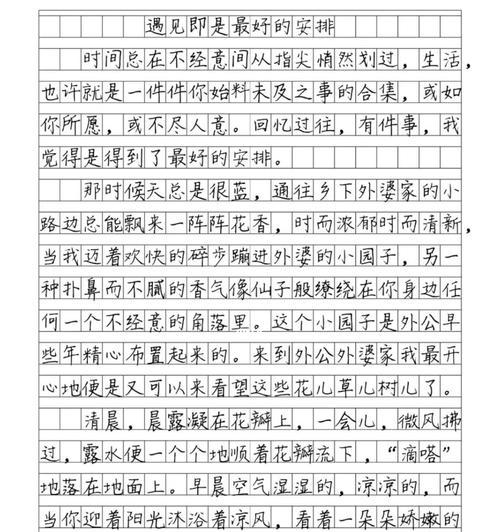 遇见即是最好的安排
时间总在不经意间从指尖悄然划过，生活，
也许就是一件件你始料未及之事的合集，或如
你所愿，或不尽人意。回忆过往，有件事，我
觉得是得到了最好的安排。
那时候天总是很蓝，通往乡下外婆家的小
路边总能飘来一阵阵花香，时而浓郁时而清新，
当我迈着欢快的碎步蹦进外婆的小园子，另一
种扑鼻而不腻的香气像仙子般缭绕在你身边任
何一个不经意的角落里。这个小园子是外公早
些年精心布置起来的。来到外公外婆家我最开
心地便是又可以来看望这些花儿草儿树儿了。
清晨，晨露凝在花瓣上，一会儿，微风拂
过，露水便一个个地顺着花瓣流下，“滴嗒”
地落在地面上。早晨空气湿湿的，凉凉的，而
当你迎着阳光沐浴着凉风，看着一朵朵娇嫩的